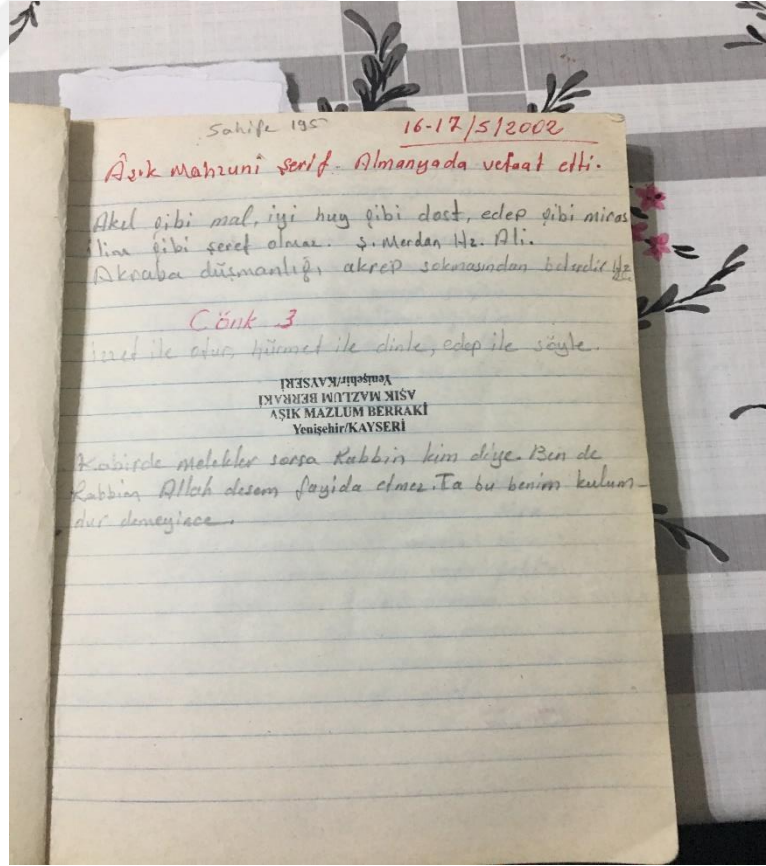 Sahife 195
16-17/5/2002
Âşık Mahzuni Şerif - Almanyada vefaat etti.
Akıl gibi mal, iyi huy gibi dost, edep gibi miras
ilim gibi şeref olmaz. Ş. Merdan Hz. Ali.
Akraba düşmanlığı, akrep sokmasından beterdir Hz.
Cönk 3
İzzet ile otur, hürmet ile dinle, edep ile söyle.
Yenişehir/KAYSERİ
AŞIK MAZLUM BERRAKİ
AŞIK MAZLUM BERRAKİ
Yenişehir/KAYSERİ
Kabirde melekler sorsa Rabbin kim diye. Ben de
Rabbim Allah desem fayida etmez. Ta bu benim kulum-
dur demeyince.